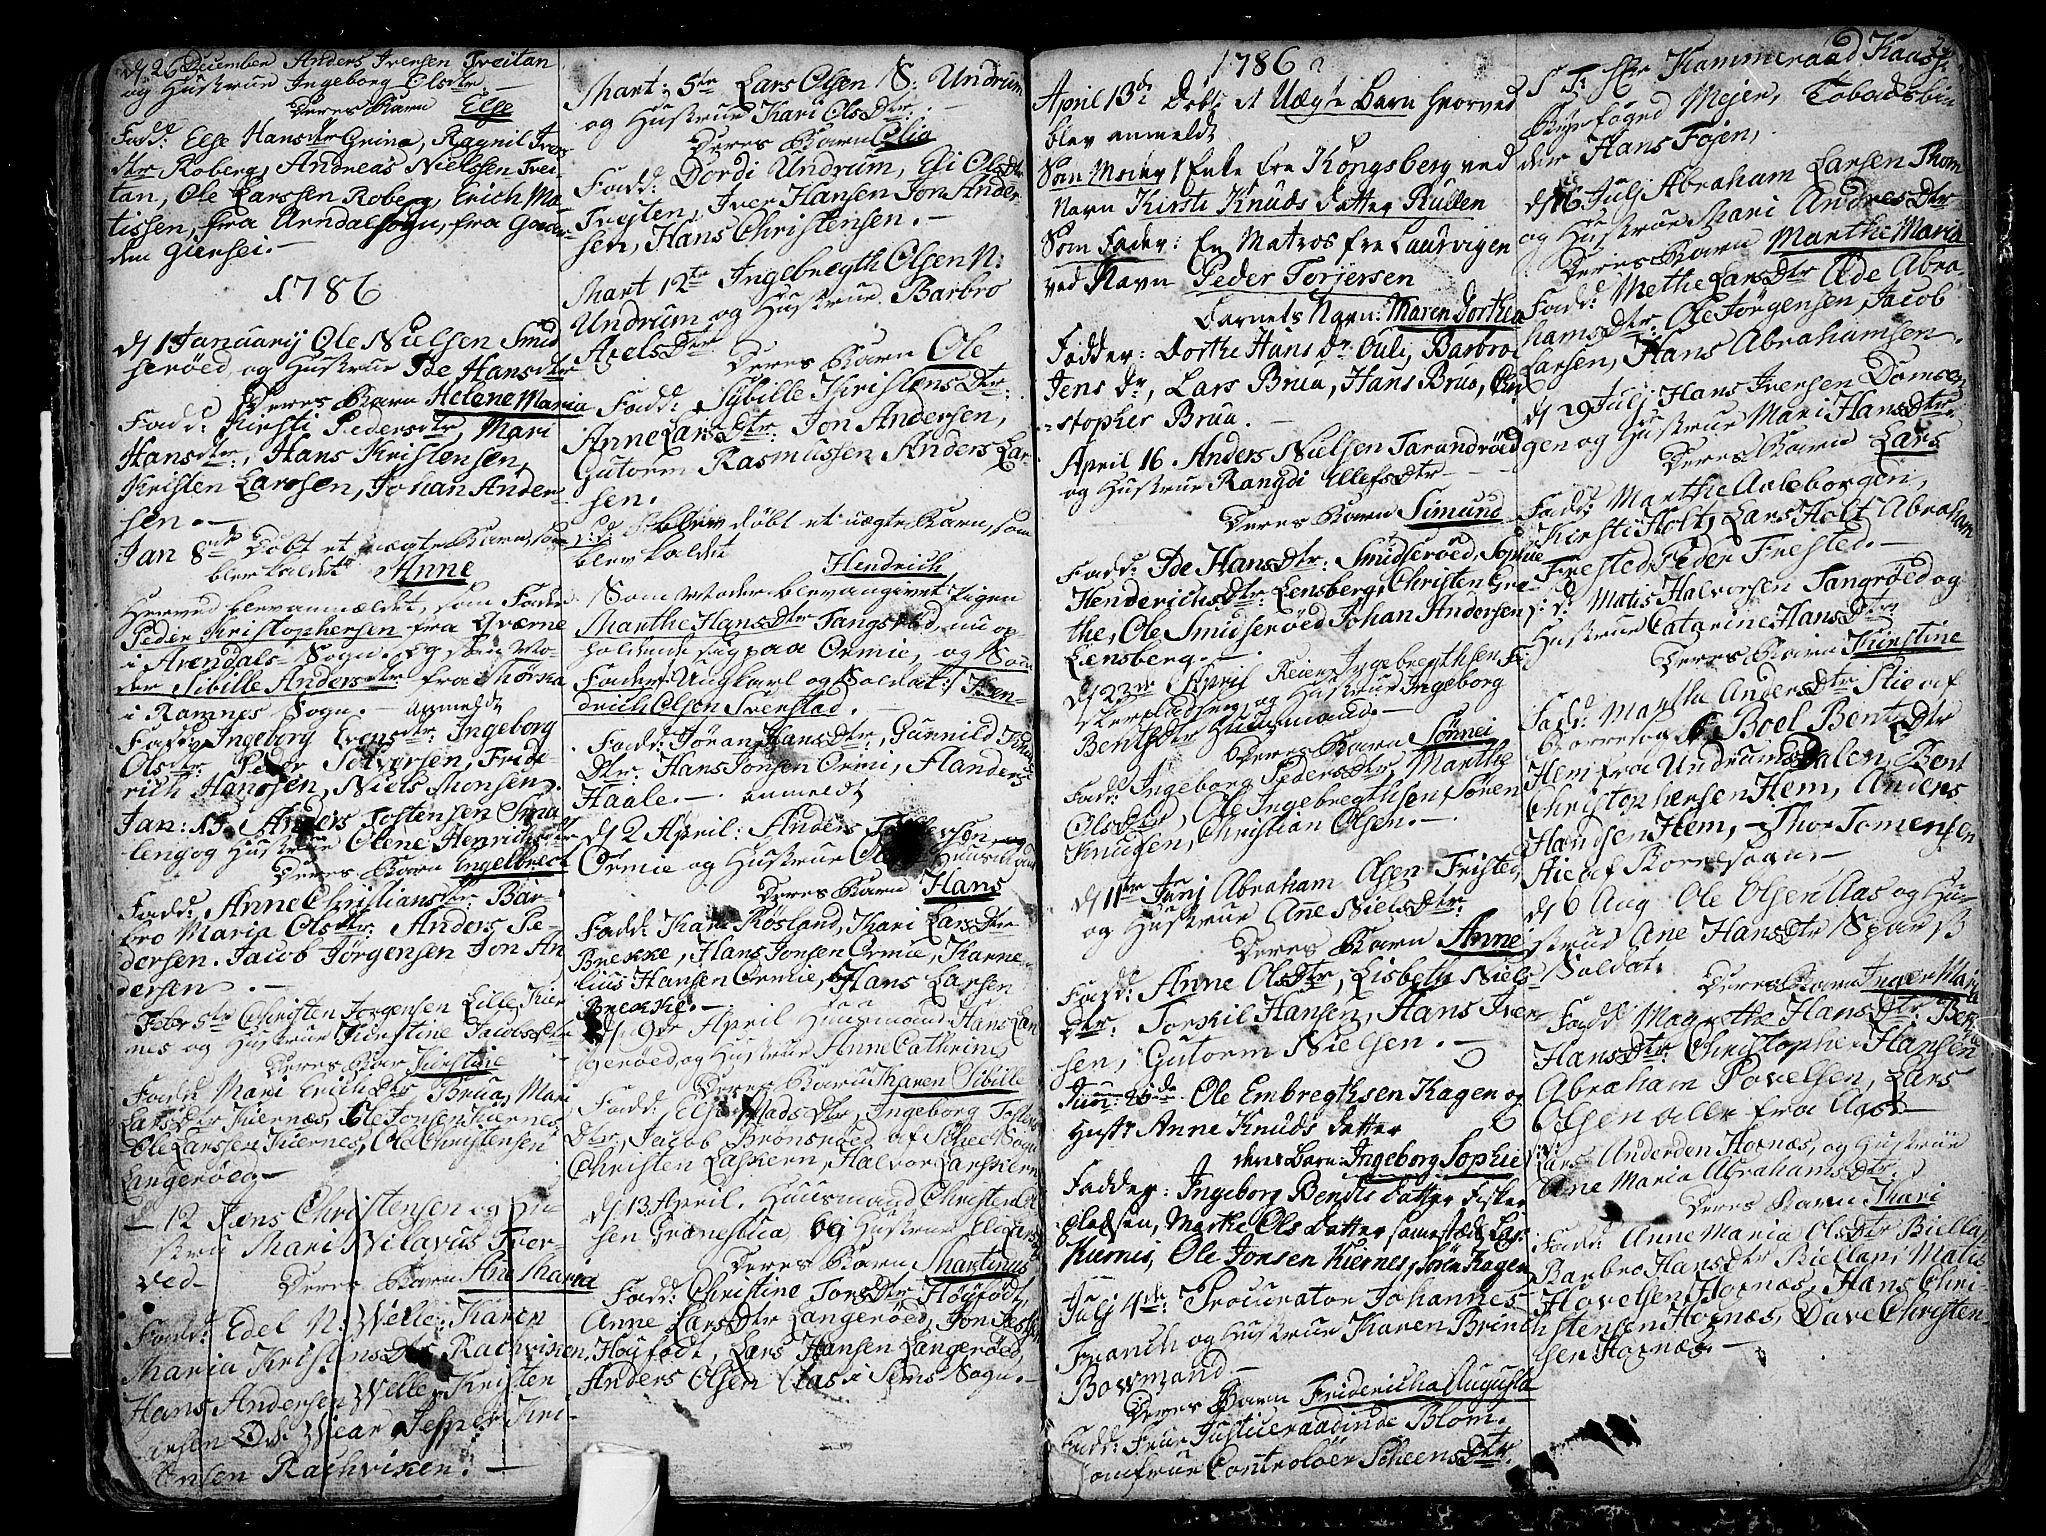 d 26 December Anders Iversen Treitan
og Hustrue Ingeborg Olsdtr
Deres Barn Else
Fadd: Else Hansdtr Grina, Ragnil Ivers
dtr Roberg, Andreas Nielssen Trei-
tan, Ole Larssen Roberg, Erich Ma-
tissen, fra Arndal Sogn, fra Gaar-
den Giersei.
1786
d 1 January Ole Nielsen Smid
serøed og Hustrue Ide Hansdtr
Deres Barn Helene Maria
Fadd: Kirsti Pedersdtr, Mari
Hansdtr:, Hans Kristensen,
Kristen Larssen, Johan Ander-
sen.
Jan 8de Døbt et uægte Barn, som
blev kaldet Anne
Herved blev anmældet, som Fader
Peder Kristophersen fra Qværne
i Arendals Sogn. og som Mo-
der Sibille Andersdtr fra
i Ramnes Sogn. anmeldt
Fadd: Ingeborg Iversdtr: Ingeborg
Olsdtr: Peder Fride-
rich Hanssen, Niels Monsen.
Jan: 15. Anders Tostensen Sma
leng og Hustrue Olene Henrichsdtr
Deres Barn Ingelbrect
Fadd: Anne Christiansdtr: Bar-
bro Maria Olsdtr: Anders Pe-
dersen. Jacob Jørgensen Jon An
dersen.
Febr 5te Christen Jørgensen Lille Kier
nes og Hustrue Kirstine Jacobsdtr
Deres Barn Kirstine
Fadd: Mari Erichsdtr Brua, Mari
Larsdtr Kiernæs, Ole Jonsen Kiernes
Ole Larssen Kiernes, Ole Christensen
Langerøed
12 Jens Christensen og Hu
strue Mari Nilavus Tver-
ved
Deres Barn Ane Maria
Fadd: Edel N: Welle, Karen
Maria Kristensdtr Rachviken,
Hans Andersen Welle, Kristen
Jesper Kri-
stensen Rachviken.
Mart: 5te Lars Olsen S: Undrum
og Hustrue Kari Olsdtr
Deres Barn Celia
Fadd: Dordi Undrum, Eli Olsdtr
Treiten, Iver Hansen Jon Ander
sen, Hans Christensen.
Mart 12te Ingebregth Olsen N:
Undrum og Hustrue Barbro
Axelsdtr
Deres Barn Ole
Fadd: Sybille Kristensdtr:
Anne Larsdtr: Jon Andersen,
Gutorm Rasmussen Anders Lar-
sen.
blev døbt et uægte Barn, som
blev kaldet
Hendrich
Som Moder blev angivet Pigen
Marthe Hansdtr Tangsrød, nu op-
holdende sig paa Ormie, og Som
Fader: Ungkarl og Soldat: Hen-
drich Olsen Tverstad.
Fadd: Jøran Hansdtr:, Gunnild
dtr: Hans Jonsen Ormi, Flanders
Haale. anmeldt
d 2 April: Anders
Ormie og Hustrue
Deres Barn Hans
Fadd: Kari Rosland, Kari Larsdtr
Brekke, Hans Jonsen Ormie, Karne-
lius Hansen Ormie, Hans Larsen
Brekke.
d 9de April Huusmand Hans Lan
gerøed og Hustrue Anne Cathrine
Deres Barn Karen Sibille
Fadd: Else Madsdtr, Ingeborg
dtr, Jacob Brønsrøed af Schee Sogn
Christen Laskern, Halvor Larskiern
d 13 April, Huusmand Christen Ol
sen Granestua og Hustrue
Deres Barn Martinus
Fadd: Christine Torsdtr Høyfødt,
Anne Larsdtr Langerøed, Jon
Høyfødt, Lars Hansen Langerøed,
Anders Olsen Aas i Sems Sogn.
1786
April 13de Døbt et Uægte Barn hvorved
blev anmeldt
Som Moder 1 Enke fra Kongsberg ved
Navn Kirsti Knuds datter Rusten
Som Fader: En Matros fra Laurvigen
ved Navn Peder Torjersen
Barnets Navn: Maren Dorthea
Fadder: Dorthe Hans dr Ouli, Barbroe
Jens dr, Lars Brua, Hans Brua, Chri
stopher Brua.
April 16. Anders Nielsen Tarandrøed
og Hustrue Rangdi Ellefsdtr
Deres Barn Simund
Fadd: Ide Hansdtr: Smidserøed, Sophie
Henderichsdtr: Lensberg, Christen Gre-
the, Ole Smidserøed Johan Andersen
Lensberg.
d 23de April Reier Ingebregthsen
og Hustrue Ingeborg
Benthsdtr Huusmand.
Deres Barn Sønnei
Fadd: Ingeborg Pedersdtr, Marthe
Olsdtr, Ole Ingebregthsen, Søren
Knudsen, Christian Olsen.
d 11te Junj Abraham Olsen Tristed
og Hustrue Ane Nielsdtr:
Deres Barn Anne
Fadd: Anne Olsdtr, Lisbeth Niels
dtr: Torkil Hansen, Hans Iver
sen, Gutorm Nielsen.
Jun: Ole Embregthsen Hagen og
Hustr Anne Knuds datter
deres Barn: Ingeborg Sophie
Fadder: Ingeborg Bendts datter
Olessen, Marthe Ols datter sammestæds, Lars
Kiernes, Ole Jonsen Kiernes, Hagen
Julj 4de: Procurator Johannes
Franch og Hustrue Karen Brinch
Bowmand
Deres Barn Fridericha Augusta
Fadd: Frue Justiceraadinde Blom.
Jomfrue Controløer Scheensdtr,
S T: Hr Kammeraad
Byefoged Mejer, Tobaks
der Hans Føjen,
d 16 Julj Abraham Larsen
og Hustrue Mari Andersdtr
Deres Barn Marthe Maria
Fadd: Methe Larsdtr Ode Abra-
hamsdtr: Ole Jørgensen, Jacob
Larsen, Hans Abrahamsen.
d 29 Julj Hans Iversen Domsen
gen og Hustrue Mari Hansdtr
Deres Barn Lars
Fadd: Marthe Aaleborgen,
Kirsti Holt, Lars Holt Abraham
Fresteds Peder Frested.
Matis Halvorsen Tangrøed og
Hustrue Catarine Hansdtr
Deres Barn Kirstine
Fadd: Martha Andersdtr Skie af
Borresogn Boel Bentsdtr
Hem fra Undrumsdalen, Bent
Christophersen Hem, Anders
Handsen Hem, Thor Tomensen
Skie af Borresogn.
d 6 Aug Ole Olsen Aas og Hu-
strue Ane Hansdtr
Soldat:
Deres Barn Inger Maria
Fadd: Marthe Hansdtr
Hansdtr: Christopher Hansen
Abraham Povelsen, Lars
Olsen alle fra Aas
Lars Andersen Hognæs, og Hustrue
Ane Maria Abrahamsdtr
Deres Barn Kari
Fadd: Anne Maria Olsdtr Bielland
Barbro Hansdtr Bielland Matis
Hovelsen Hognæs, Hans Chri
stensen Hognæs, Dave Christen
sen Hognæs.